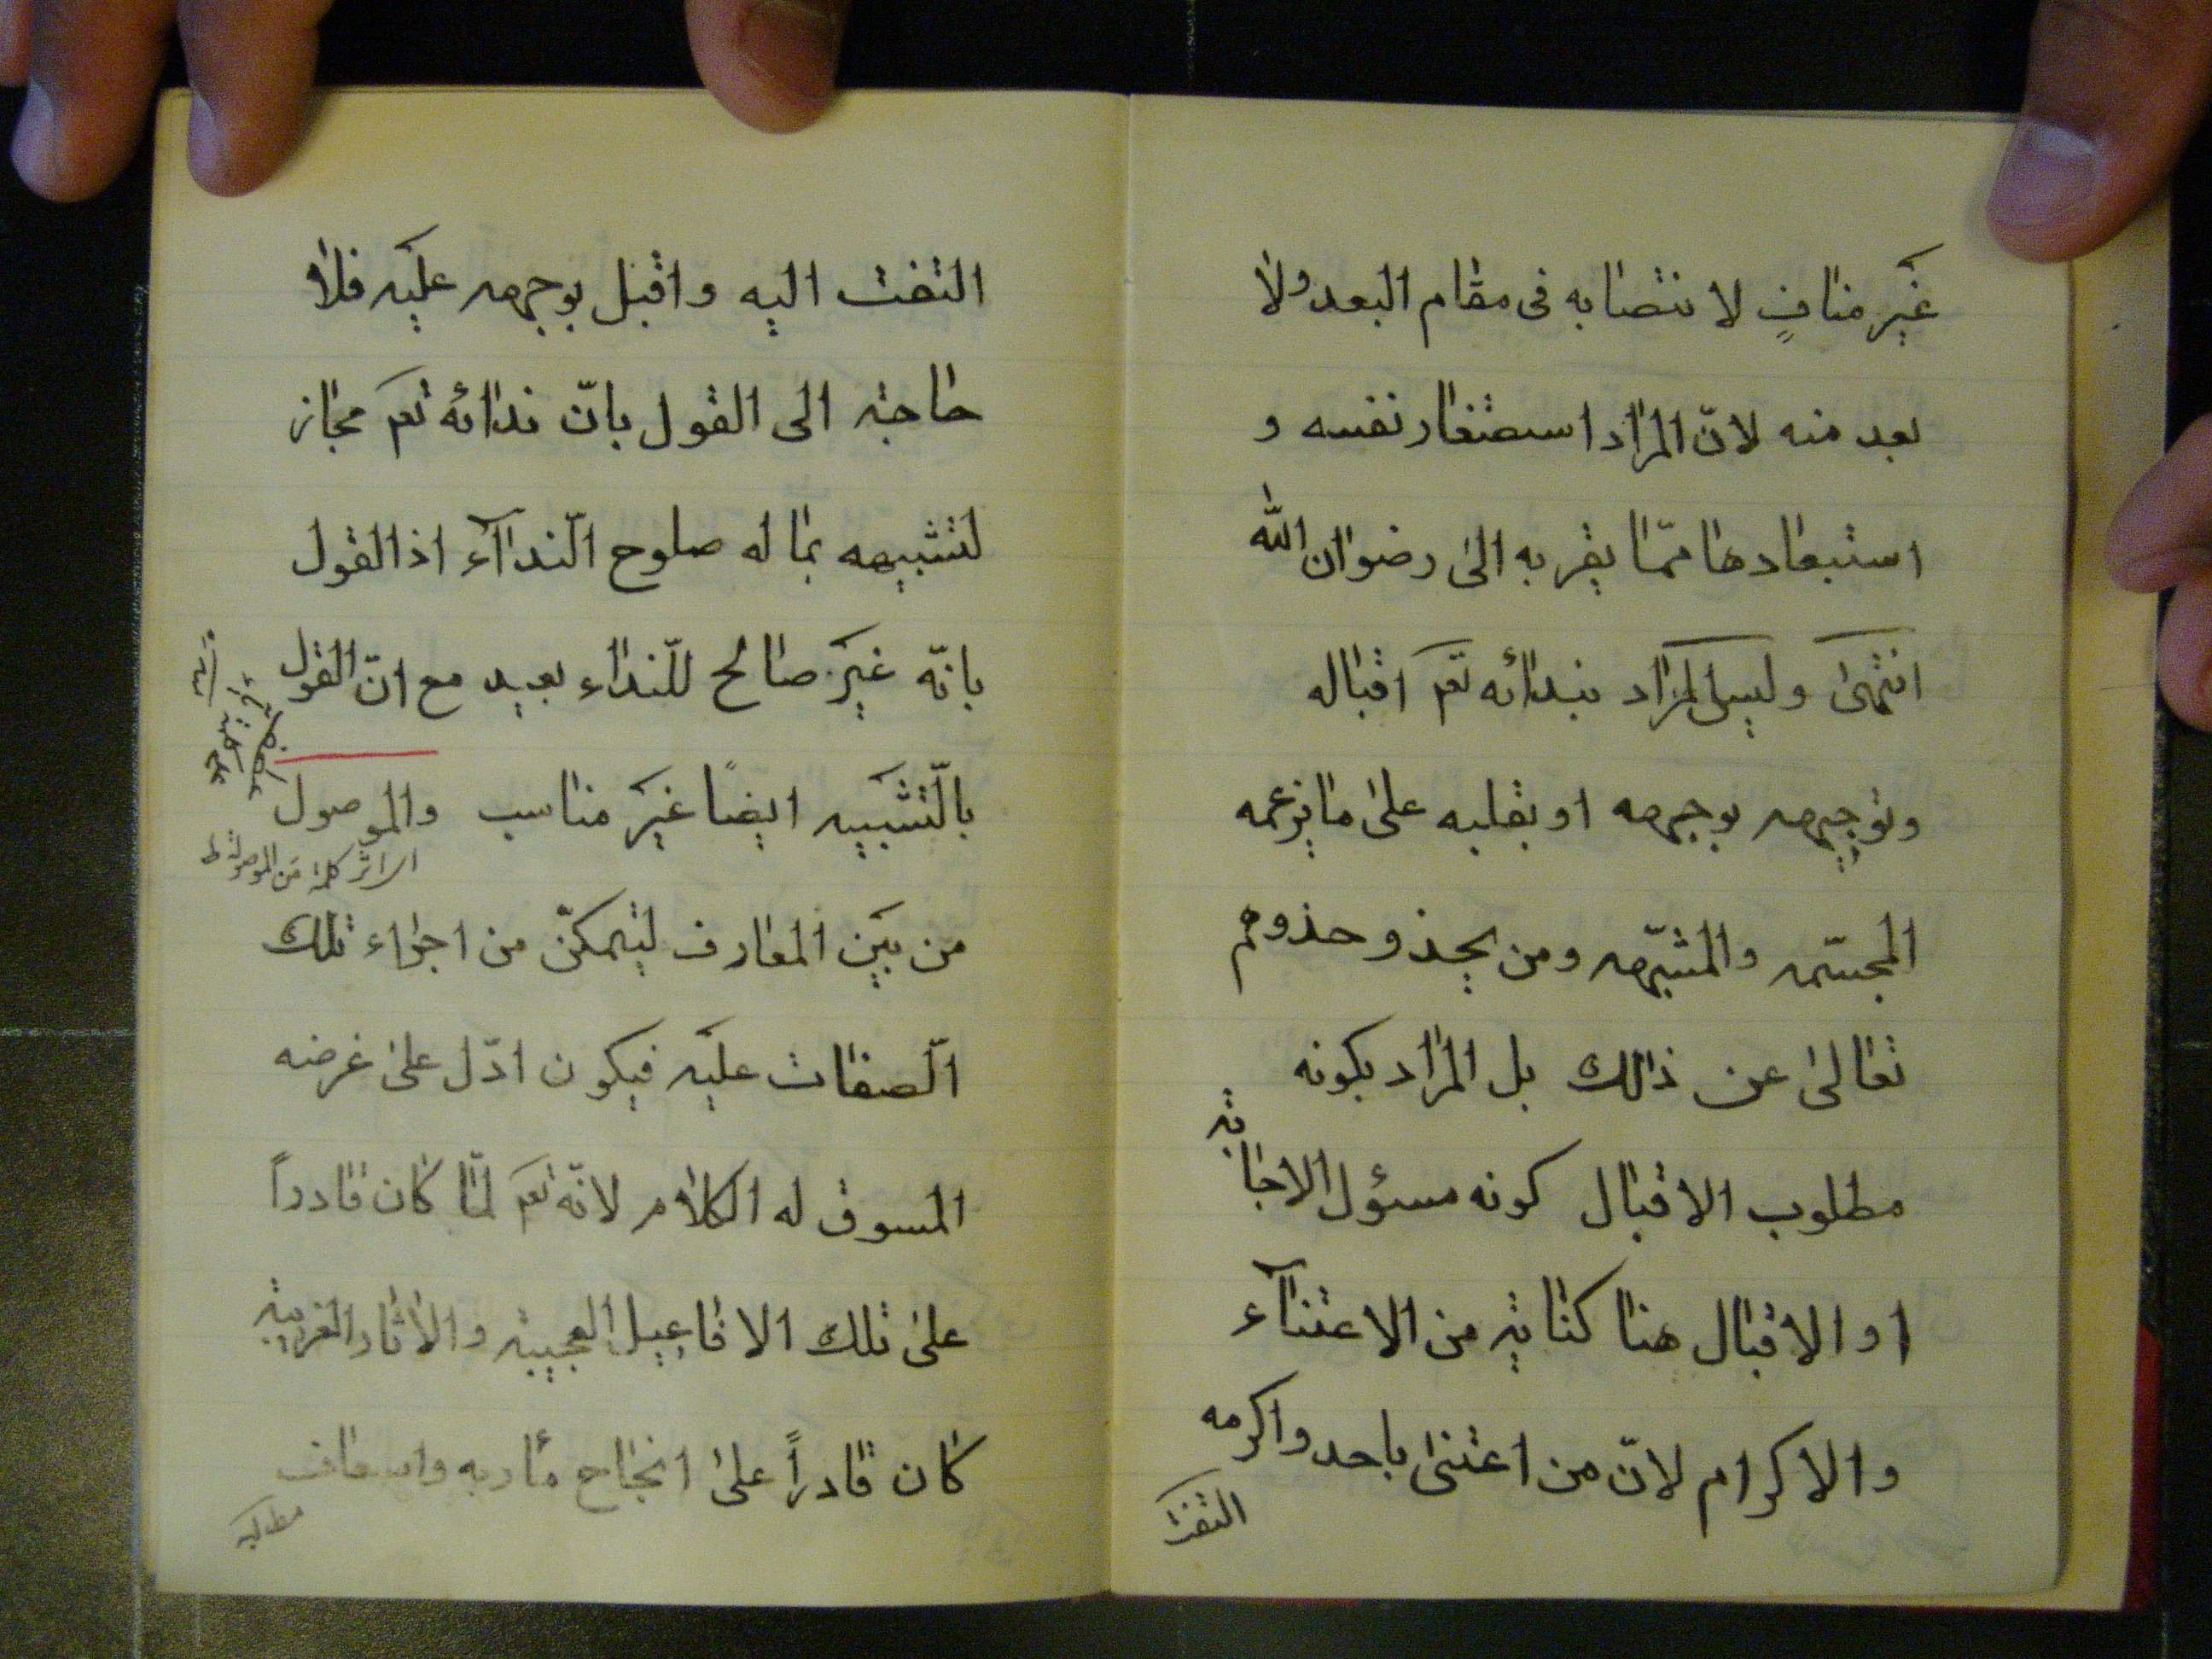 غیر منافٍ لانتصابه فی مقام البعد ولا
بعد منه لانّ المراد استصغار نفسه و
استبعادها ممّا یقربه الی رضوان الله
انتهی ولیس المراد بندائه تعـ اقباله
وتوجیهه بوجهه او بقلبه علی ما یزعمه
المجسّمه والمشبّهه ومن یحذو حذوهم
تعالی عن ذالك بل المراد بکونه
مطلوب الاقبال کونه مسؤل الاجابة
او الاقبال هنا کنایة من الاعتنآء
والاکرام لانّ من اعتنی باحد واکرمه
التفت
التفت الیه واقبل بوجهه علیه فلا
حاجة الی القول بانّ ندائه تعـ مجاز
لتشبیهه بما له صلوح النّدآء اذ القول
بانّه غیر صالح للنّداء بعید مع انّ القول
بالتّشبیه ایضاً غیر مناسب والموصول
من بین المعارف لیتمکّن من اجراء تلك
الصّفات علیه فیکون ادلّ علی غرضه
المسوق له الکلام لانّه تعـ لمّا کان قادراً
علی تلك الافاعیل العجیبة والاثار الغریبة
کان قادراً علی انجاح مأربه واسعاف
مطالبه